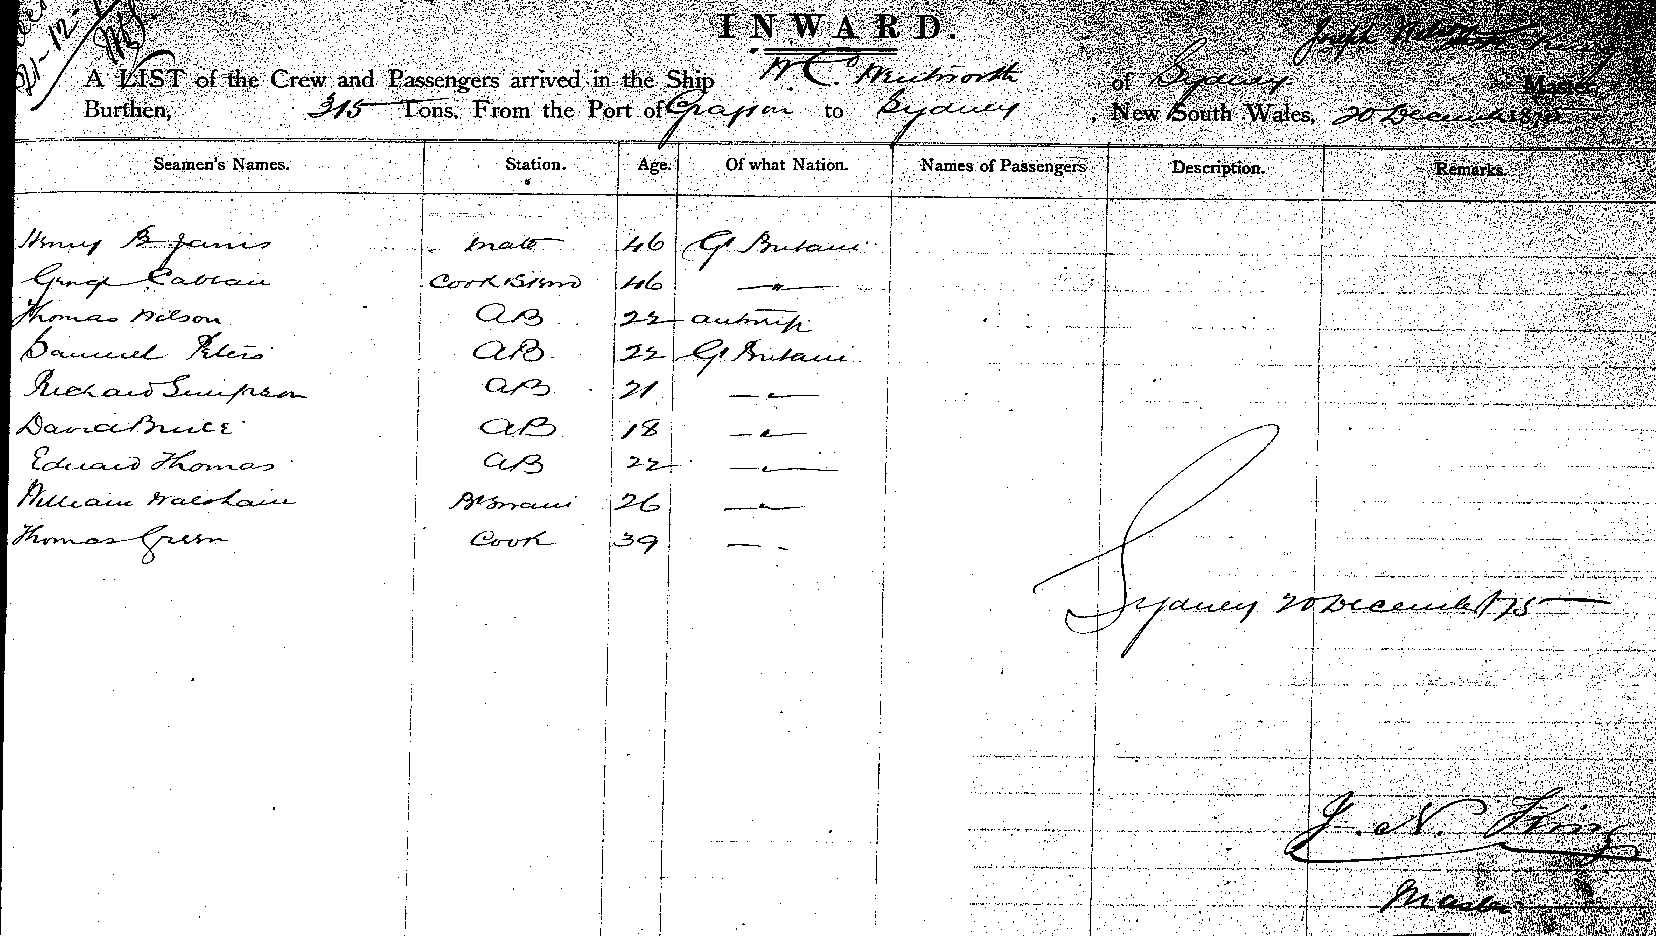 21-12-
INWARD.
Joseph Nelson King
A LIST of the Crew and Passengers arrived in the Ship W C Wentworth of Sydney Master,
Burthen, 315 Tons. From the Port of to Sydney , New South Wales, 20 December 1875
Seamen's Names. Station. Age. Of what Nation. Names of Passengers Description. Remarks.
Henry B Janis Mate 46 Gt Britain
George Cook & Stwd 46 "
Thomas Wilson AB 22 Antwerp
Samuel Peters AB 22 Gt Britain
Richard Simpson AB 21 "
David Bruce AB 18 "
Edward Thomas AB 22 "
William 26 "
Thomas Green Cook 39 "
Sydney 20 December 1875
J. N. King
Master